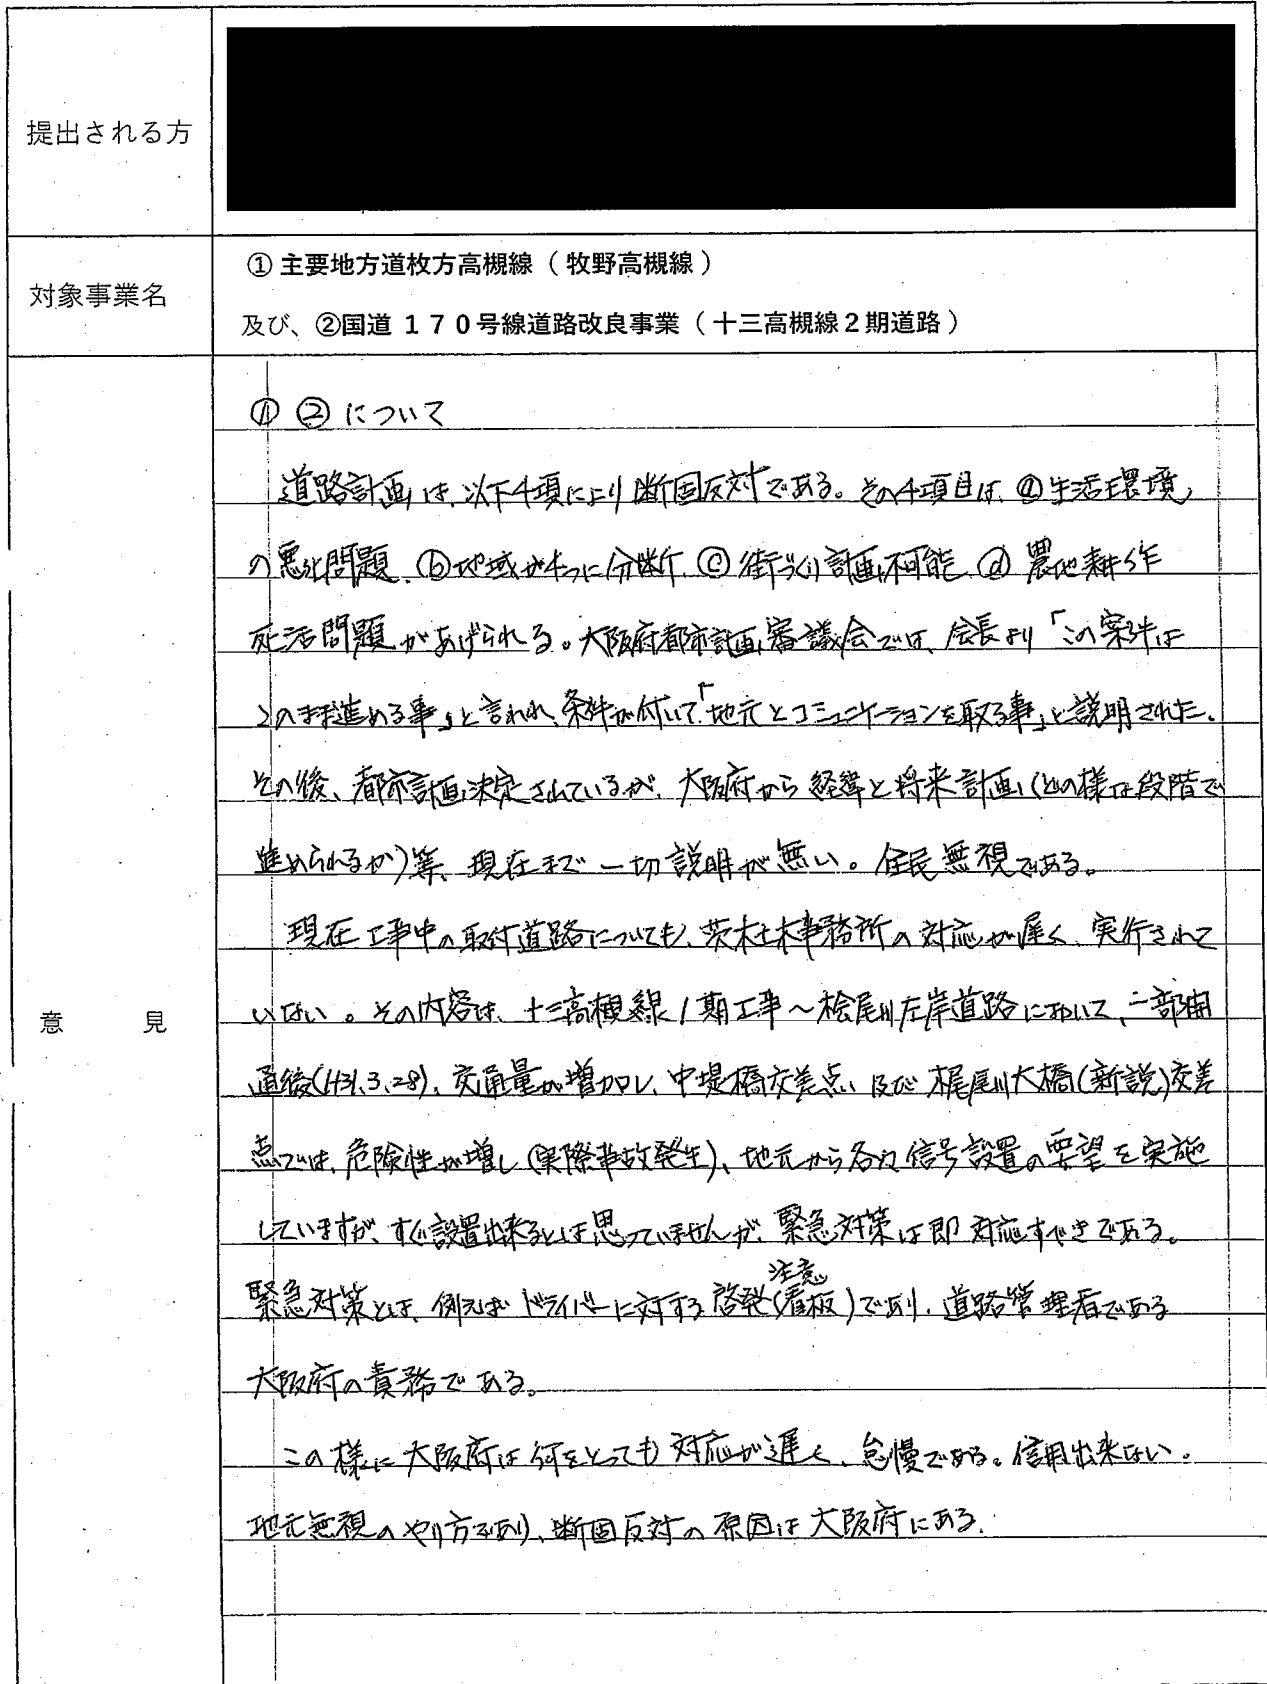 提出される方
対象事業名
①主要地方道枚方高槻線（牧野高槻線）
及び、②国道１７０号線道路改良事業（十三高槻線２期道路）
意見
① ② について
道路計画は、以下4項により断固反対である。その4項目は、ⓐ生活環境
の悪化問題、ⓑ地域が4つに分断、ⓒ街づくり計画不可能、ⓓ農地耕作
死活問題があげられる。大阪府都市計画審議会では、会長より「この案件は
このまま進める事」と言われ、条件が付いて、「地元とコミュニケーションを取る事」と説明された。
その後、都市計画決定されているが、大阪府から経緯と将来計画（どの様な段階で
進められるか）等、現在まで一切説明が無い。住民無視である。
現在工事中の取付道路についても、茨木土木事務所の対応が遅く、実行されて
いない。その内容は、十三高槻線1期工事～桧尾川左岸道路において、一部開
通後（H31.3.28）、交通量が増加し、中堤橋交差点、及び梶尾川大橋（新説）交差
点では、危険性が増し（実際事故発生）、地元から各々信号設置の要望を実施
していますが、すぐ設置出来るとは思っていませんが、緊急対策は即対応すべきである。
緊急対策とは、例えばドライバーに対する啓発（注意看板）であり、道路管理者である
大阪府の責務である。
この様に大阪府は何をとっても対応が遅く、怠慢である。信用出来ない。
地元無視のやり方であり、断固反対の原因は大阪府にある。